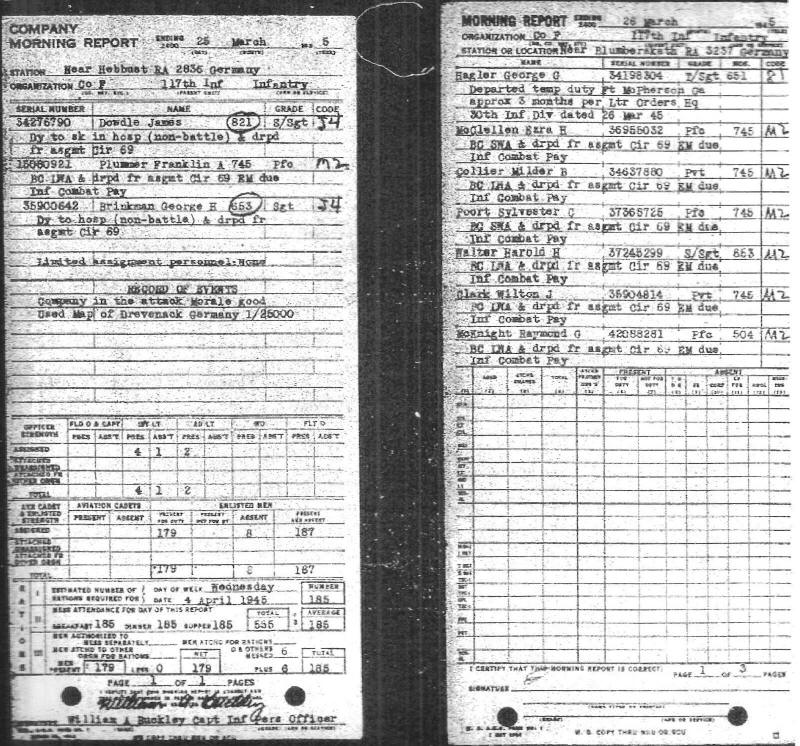 COMPANY
MORNING REPORT ENDING 2400 25 March 5
STATION Near Hebbust RA 2836 Germany
ORGANIZATION Co F 117th Inf Infantry
SERIAL NUMBER NAME GRADE CODE
34276790 Dowdle James 821 S/Sgt J4
Dy to sk in hosp (non-battle) & drpd
fr asgmt Cir 69
15080921 Plummer Franklin A 745 Pfc M2
BC LWA & drpd fr asgmt Cir 69 EM due
Inf Combat Pay
35900642 Brinkman George H 653 Sgt J4
Dy to hosp (non-battle) & drpd fr
asgmt Cir 69
Limited assignment personnel-None
RECORD OF EVENTS
Company in the attack Morale good
Used Map of Drevenack Germany 1/25000
OFFICER STRENGTH FLD O & CAPT 1ST LT 2D LT WO FLT O
PRES ABS'T PRES ABS'T PRES ABS'T PRES ABS'T PRES ABS'T
ASSIGNED 4 1 2
TOTAL 4 1 2
AVN CADET & ENLISTED STRENGTH AVIATION CADETS ENLISTED MEN
PRESENT ABSENT PRESENT FOR DUTY PRESENT NOT FOR DY ABSENT PRESENT AND ABSENT
ASSIGNED 179 8 187
TOTAL 179 8 187
ESTIMATED NUMBER OF RATIONS REQUIRED FOR DAY OF WEEK Wednesday NUMBER
DATE 4 April 1945 185
MESS ATTENDANCE FOR DAY OF THIS REPORT TOTAL AVERAGE
BREAKFAST 185 DINNER 185 SUPPER 185 555 185
MEN AUTHORIZED TO MESS SEPARATELY MEN ATCHD FOR RATIONS
MEN ATCHD TO OTHER ORGN FOR RATIONS NET O & OTHERS MESSED 6 TOTAL
MEN PRESENT 179 LESS 0 179 PLUS 6 185
PAGE 1 OF 1 PAGES
William A Buckley
William A Buckley Capt Inf Pers Officer
MORNING REPORT ENDING 2400 26 March 5
ORGANIZATION Co F 117th Inf Infantry
STATION OR LOCATION Near Plumberskath RA 3237 Germany
NAME SERIAL NUMBER GRADE MOS. CODE
Hagler George G 34198304 T/Sgt 651
Departed temp duty Ft McPherson Ga
approx 3 months per Ltr Orders Hq
30th Inf Div dated 26 Mar 45
McClellen Ezra H 36955032 Pfc 745 M2
BC SWA & drpd fr asgmt Cir 69 EM due
Inf Combat Pay
Collier Milder B 34637880 Pvt 745 M2
BC LWA & drpd fr asgmt Cir 69 EM due
Inf Combat Pay
Poort Sylvester C 37365725 Pfc 745 M2
BC SWA & drpd fr asgmt Cir 69 EM due
Inf Combat Pay
Walter Harold H 37245299 S/Sgt 653 M2
BC LWA & drpd fr asgmt Cir 69 EM due
Inf Combat Pay
Clark Wilton J 35904814 Pvt 745 M2
BC LWA & drpd fr asgmt Cir 69 EM due
Inf Combat Pay
McKnight Raymond G 42088281 Pfc 504 M2
BC LWA & drpd fr asgmt Cir 69 EM due
Inf Combat Pay
PRESENT ABSENT
I CERTIFY THAT THIS MORNING REPORT IS CORRECT: PAGE 1 OF 3 PAGES
SIGNATURE
W. D. COPY THRU MRU OR SCU